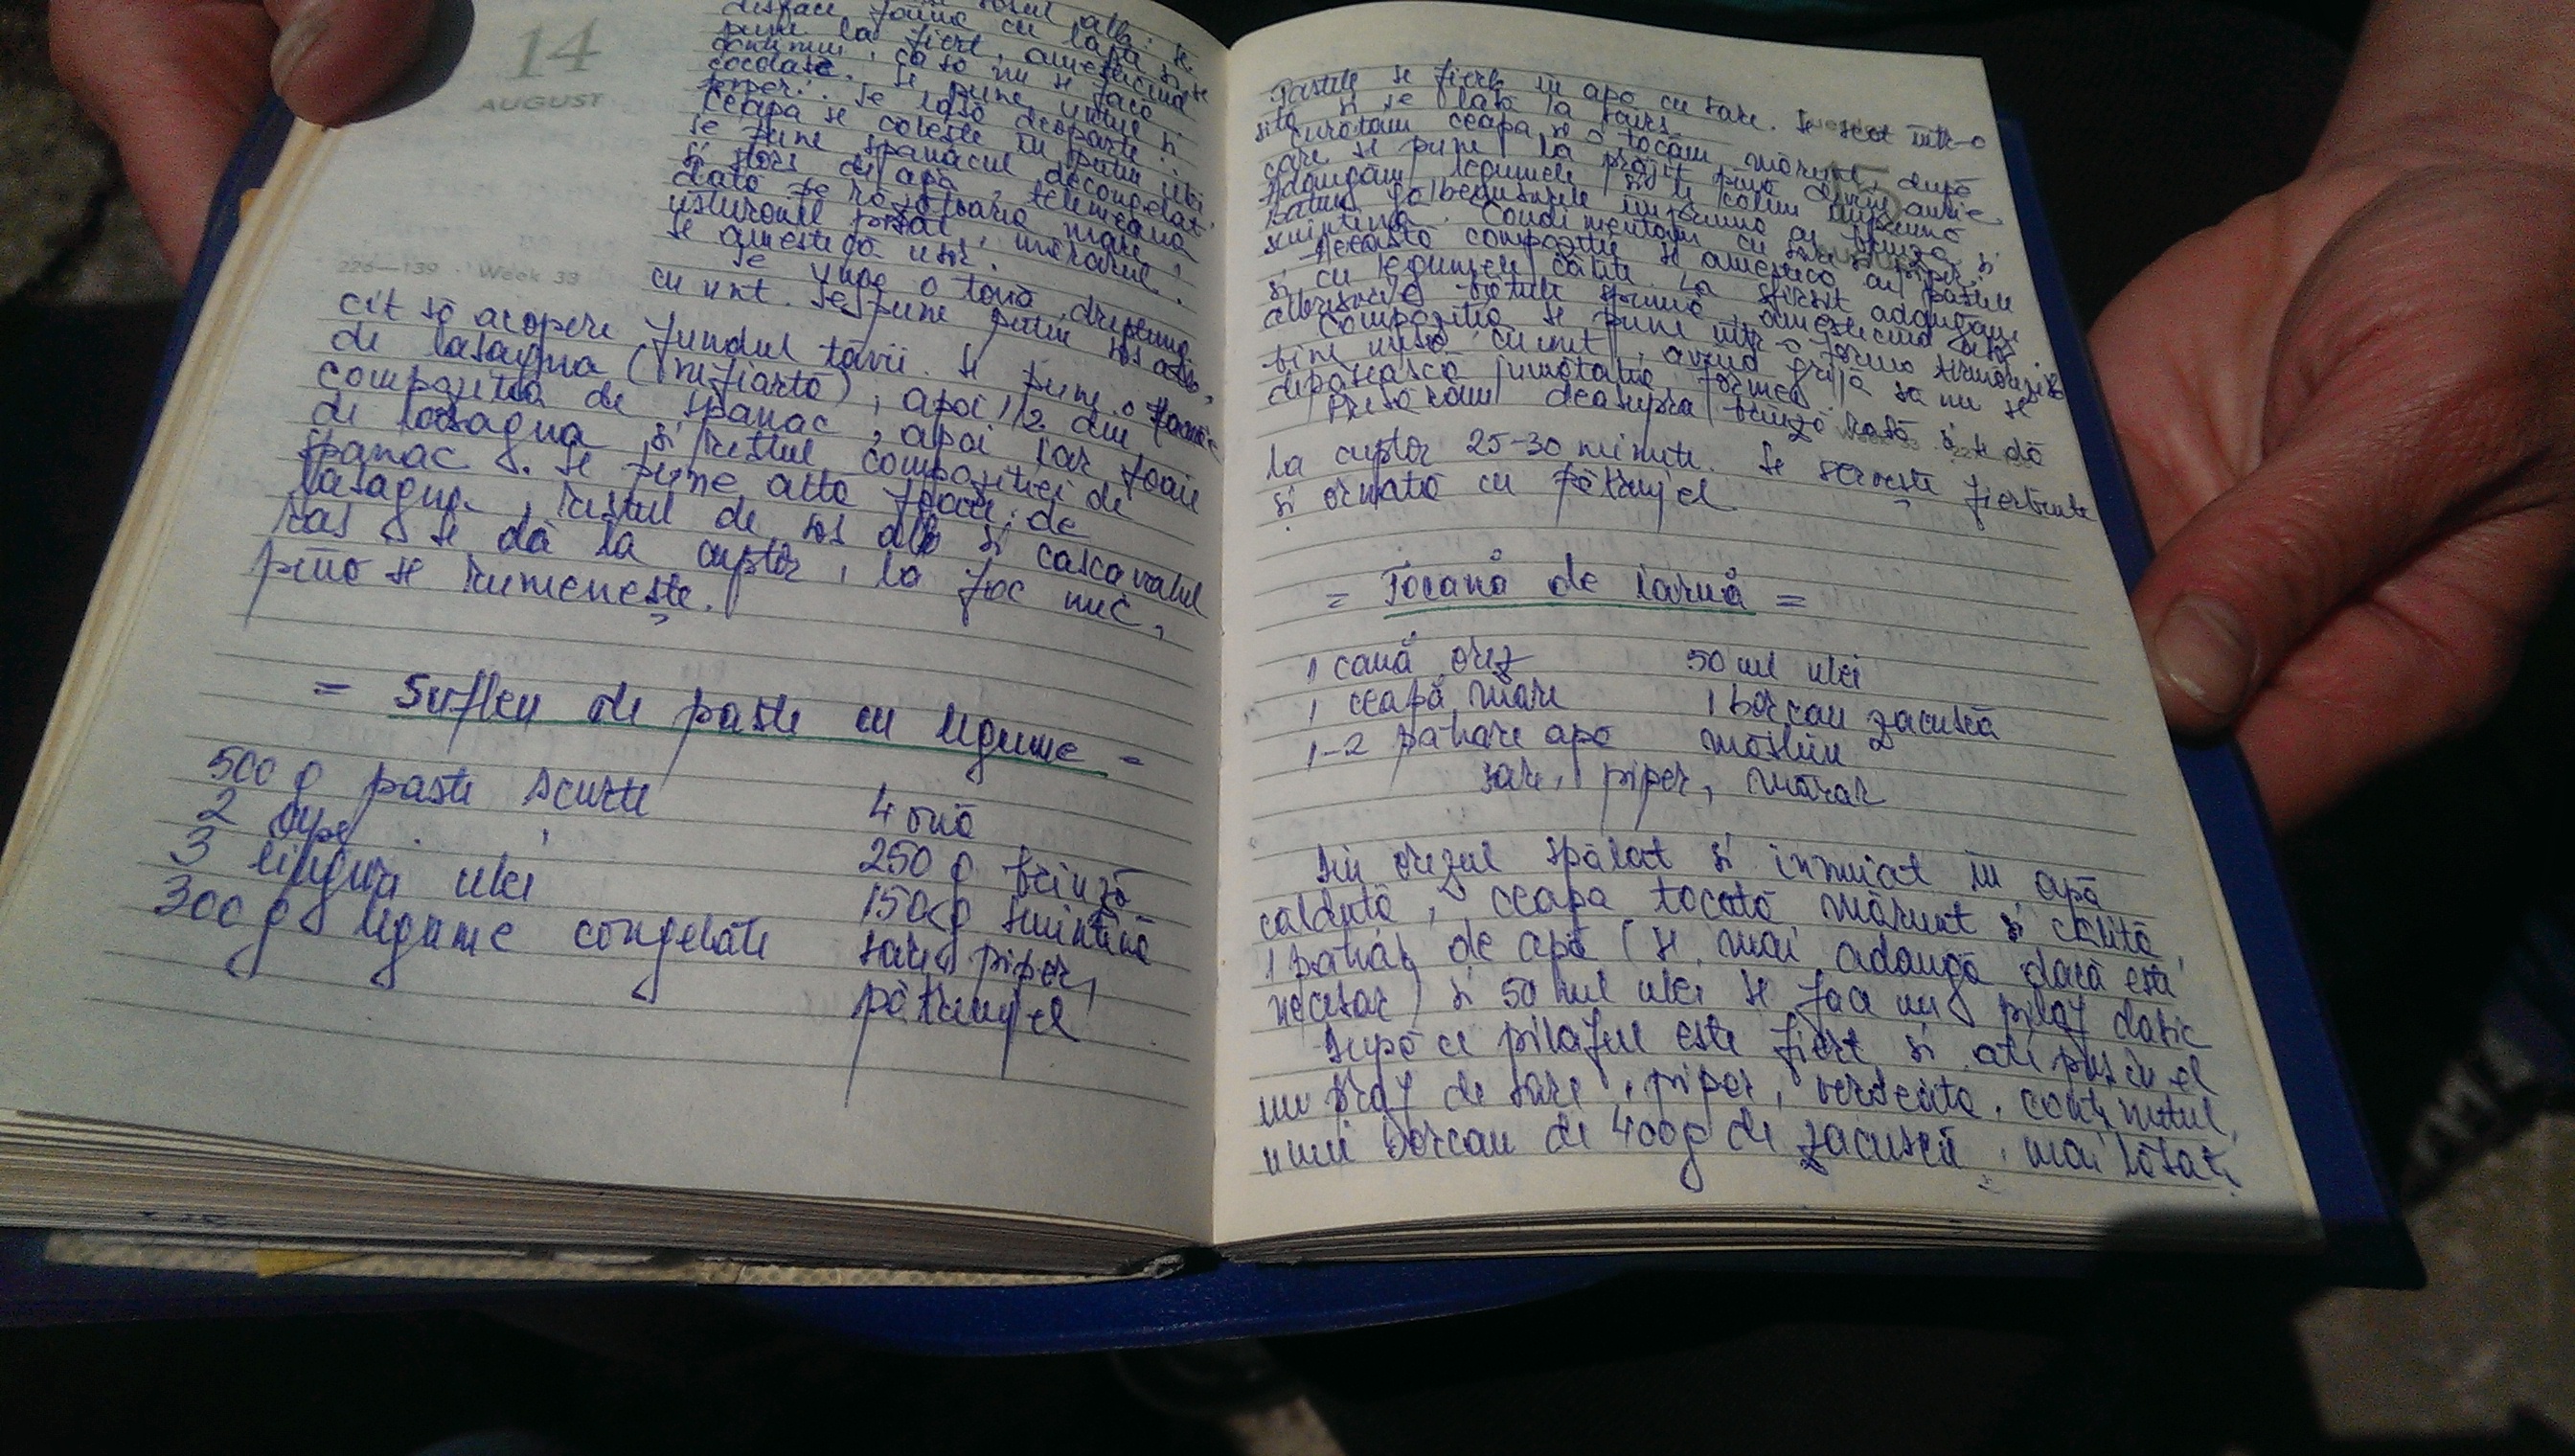 14
AUGUST
sosul alb: se
desface făina cu lapte și se
pune la fiert, amestecînd
continuu, ca să nu se facă
cocoloașe. Se pune untul și
piper. Se lasă deoparte.
Ceapa se călește în puțin ulei,
se pune spanacul decongelat
și stors de apă, telemeaua
dată pe răzătoarea mare,
usturoiul pisat, mărarul.
Se amestecă ușor.
Se unge o tavă dreptungh.
226—139 · Week 33
cu unt. Se pune puțin sos alb,
cît să acopere fundul tăvii. Se pune o foaie
de lasagna (nefiartă), apoi 1/2 din
compoziția de spanac, apoi iar foaie
de lasagna și restul compoziției de
spanac. Se pune altă foaie de
lasagna, restul de sos alb și cascavalul
ras și se dă la cuptor, la foc mic,
pînă se rumenește.
= Sufleu de paste cu legume =
500 g paste scurte
2 cepe
3 linguri ulei
300 g legume congelate
4 ouă
250 g brînză
150 g smîntînă
sare, piper,
pătrunjel
Pastele se fierb în apă cu sare. Se scot într-o
sită și se lasă la scurs.
Curățăm ceapa, o tocăm mărunt, după
care se pune la prăjit pînă devine aurie.
Adăugăm legumele și le călim împreună.
Batem gălbenușurile împreună cu brînza și
smîntîna. Condimentăm cu sare și piper.
Această compoziție se amestecă cu pastele
și cu legumele călite. La sfîrșit adăugăm
albușurile bătute spumă, amestecînd ușor.
Compoziția se pune într-o formă termorezist.
bine unsă cu unt, avînd grijă să nu se
depășească jumătatea formei.
Presărăm deasupra brînză rasă și se dă
la cuptor 25-30 minute. Se servește fierbinte
și ornată cu pătrunjel
= Tocană de iarnă =
1 cană orez
1 ceapă mare
1-2 pahare apă
50 ml ulei
1 borcan zacuscă
măsline
sare, piper, mărar
Din orezul spălat și înmuiat în apă
călduță, ceapa tocată mărunt și călită,
1 pahar de apă (se mai adaugă dacă este
necesar) și 50 ml ulei se face un pilaf clasic
După ce pilaful este fiert și ați pus în el
un praf de sare, piper, verdeața, conținutul
unui borcan de 400g de zacuscă, mai lăsați